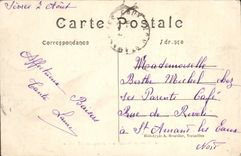 Sèvres 2 Août
Carte Postale
Correspondance
Adresse
Mademoiselle
Berthe Michel chez
ses Parents Café
Rue de Rivoli
à St Amand les Eaux
Nord
Affectueux Baisers
Tante Laure